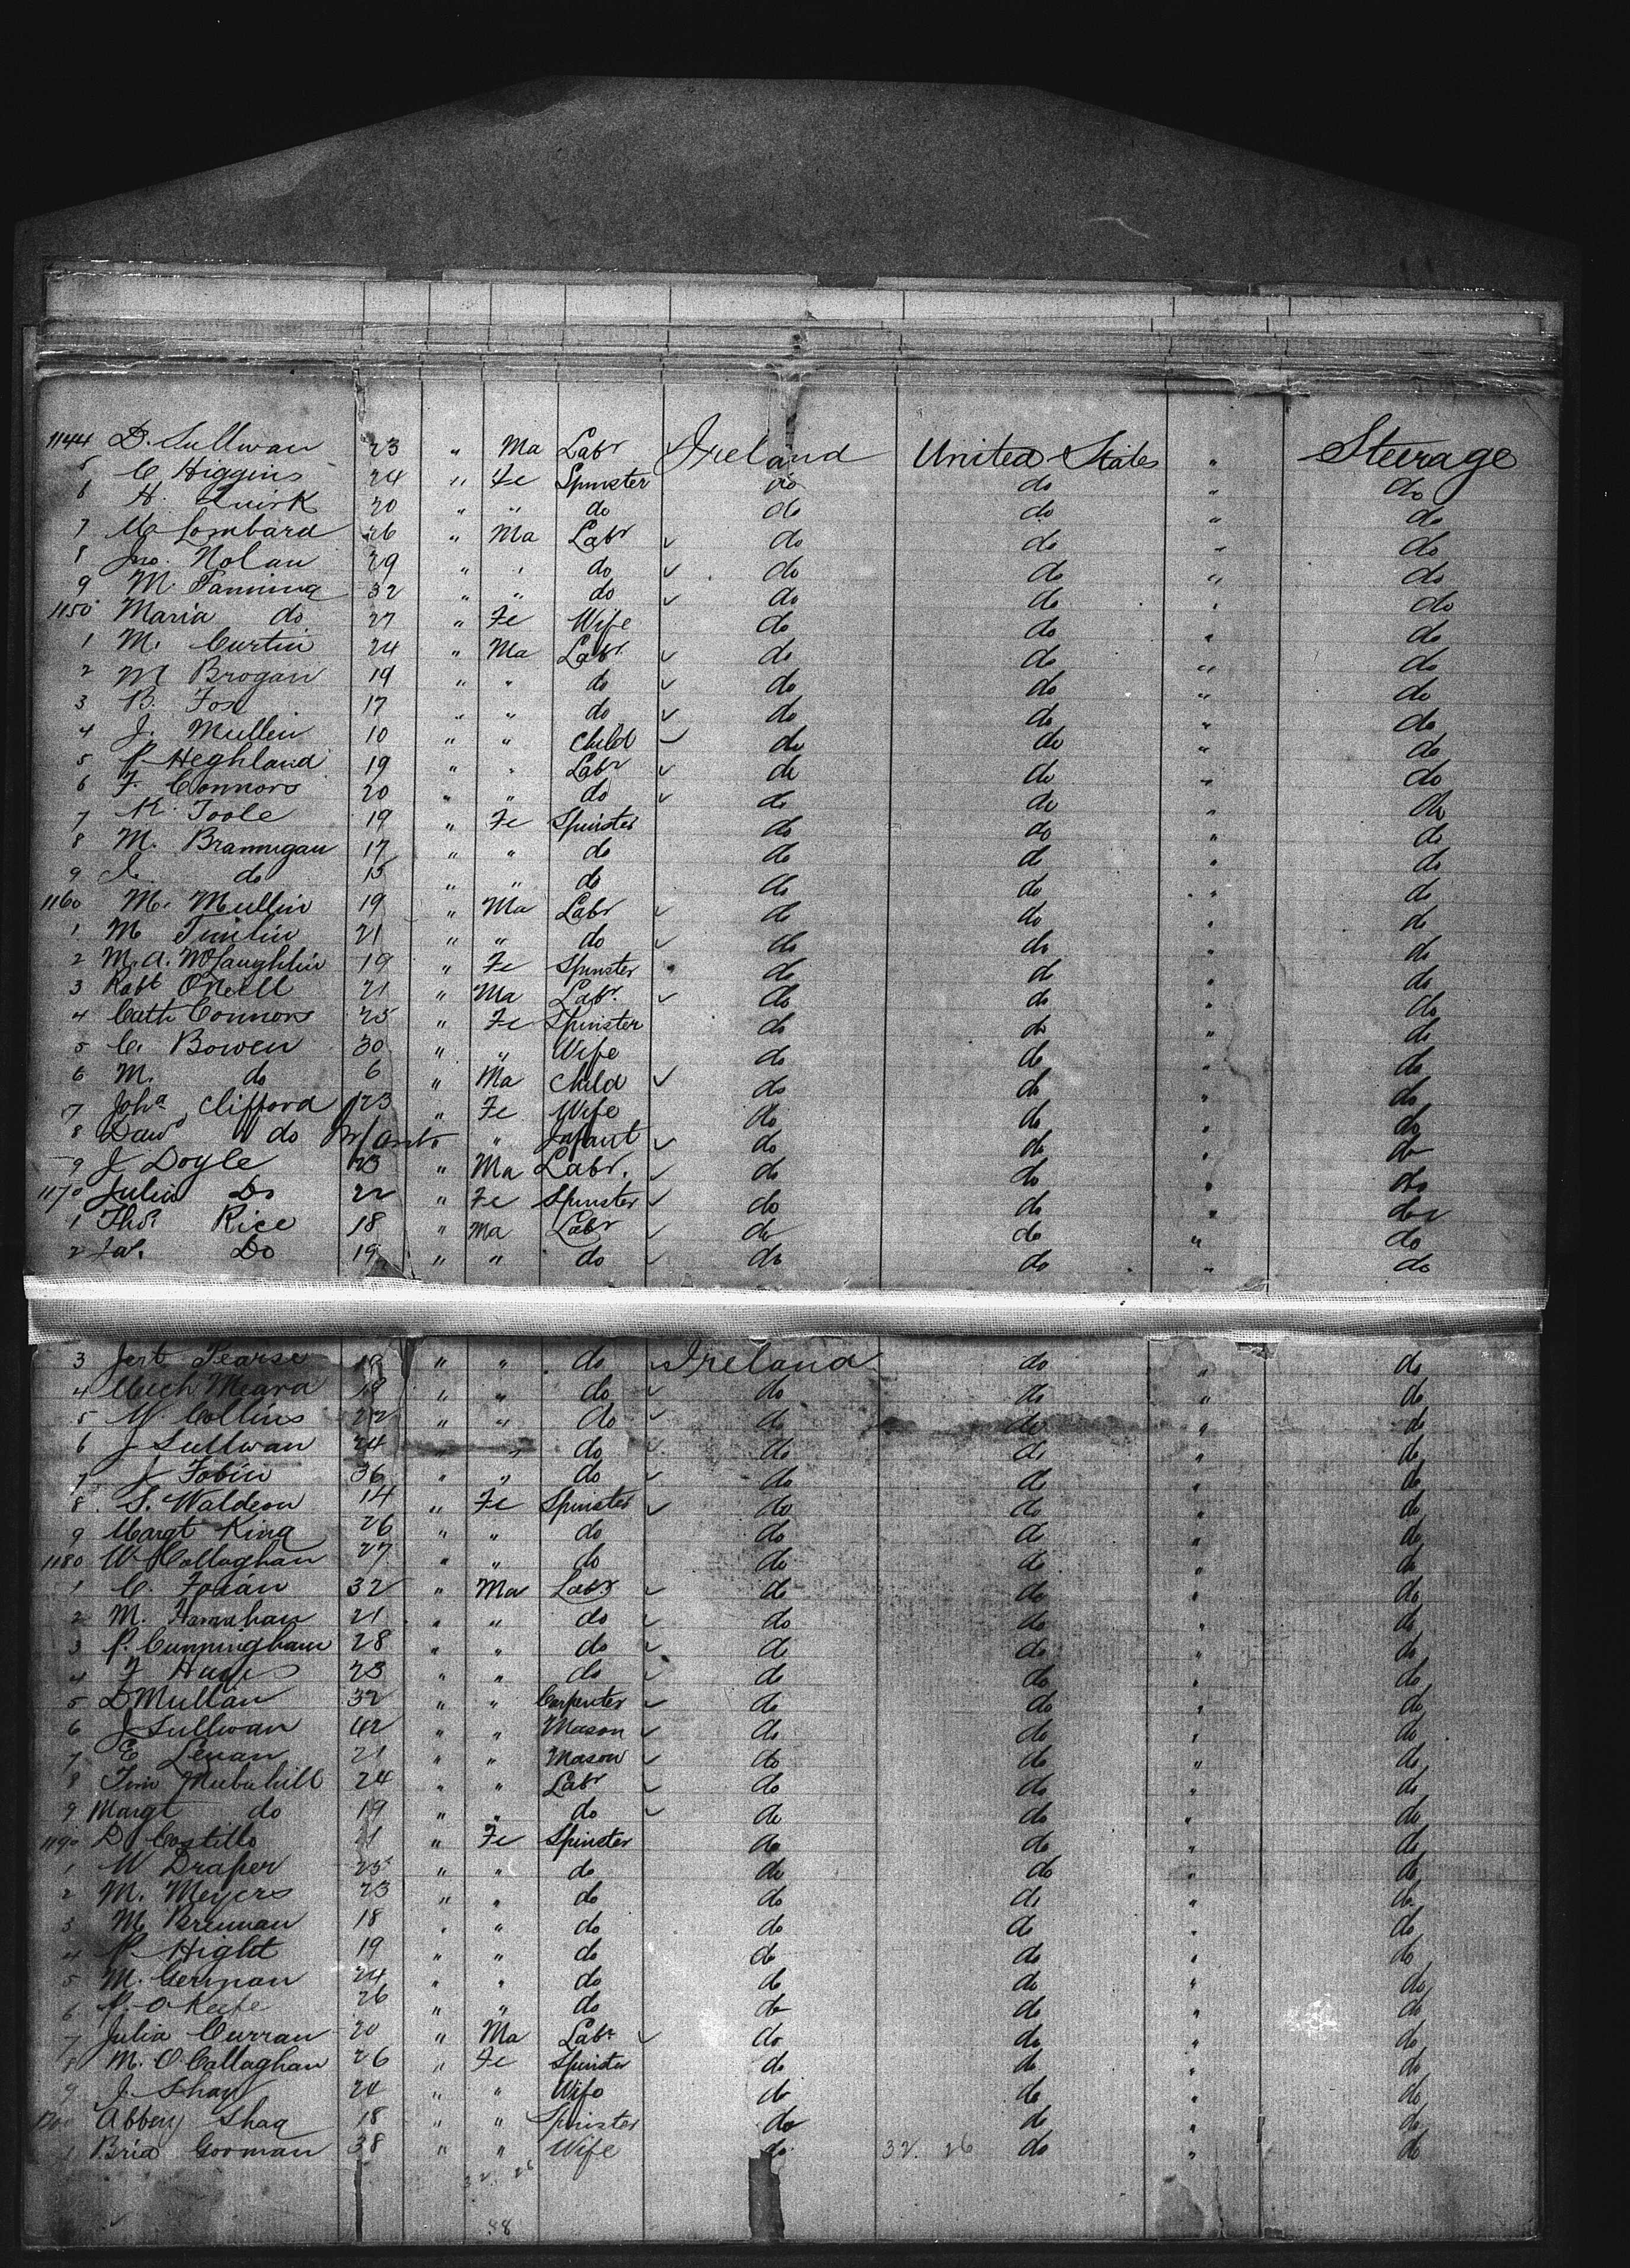 1144 D. Sullivan 23 " Ma Labr Ireland United States " Steerage
5 C Higgins 24 " Fe Spinster do do " do
6 H. Quirk 20 " " do do do " do
7 M Lombard 26 " Ma Labr do do " do
8 Jno. Nolan 29 " " do do do " do
9 M. Fanning 32 " " do do do " do
1150 Maria do 27 " Fe Wife do do " do
1 M. Curtin 24 " Ma Labr do do " do
2 M Brogan 19 " " do do do " do
3 B. Fox 17 " " do do do " do
4 J. Mullin 10 " " Child do do " do
5 P. Heghland 19 " " Labr do do " do
6 F. Connors 20 " " do do do " do
7 K. Toole 19 " Fe Spinster do do " do
8 M. Brannigan 17 " " do do do " do
9 do 15 " " do do do " do
1160 M. Mullin 19 " Ma Labr do do " do
1 M Timlin 21 " " do do do " do
2 M. A. McLaughlin 19 " Fe Spinster do do " do
3 Robt ONeill 21 " Ma Labr. do do " do
4 Cath Connors 25 " Fe Spinster do do " do
5 C. Bowen 30 " " Wife do do " do
6 M. do 6 " Ma Child do do " do
7 Joha Clifford 23 " Fe Wife do do " do
8 do " Infant do do " do
9 J Doyle 23 " Ma Labr. do do " do
1170 Julia Do 22 " Fe Spinster do do " do
1 Thos. Rice 18 " Ma Labr do do " do
2 Do 19 " " do do do " do
3 Pearse 19 " " do Ireland do " do
4 Mich Meara 19 " " do do do " do
5 W. Collins 22 " " do do do " do
6 J Sullivan 24 " do do do " do
7 J Tobin 36 " " do do do " do
8 S. Waldron 14 " Fe Spinster do do " do
9 Margt King 26 " " do do do " do
1180 W Callaghan 27 " " do do do " do
1 C. 32 " Ma Labr do do " do
2 M. Hanrahan 21 " " do do do " do
3 P. Cunningham 28 " " do do do " do
4 23 " " do do do " do
5 D Mullan 32 " " Carpenter do do " do
6 J Sullivan 42 " " Mason do do " do
7 E 21 " " Mason do do " do
8 Tim 24 " " Labr do do " do
9 Margt do 19 " " do do do " do
1190 D Costillo 21 " Fe Spinster do do " do
1 W Draper 25 " " do do do " do
2 M. Meyers 23 " " do do do " do
3 M Brennan 18 " " do do do " do
4 P. Hight 19 " " do do do " do
5 M. German 24 " " do do do " do
6 P. OKeefe 26 " " do do do " do
7 Julia Curran 20 " Ma Labr do do " do
8 M. O Callaghan 26 " Fe Spinster do do " do
9 J. Shay 24 " " Wife do do " do
1200 Abbey Shag 18 " " Spinster do do " do
1 Brid Gorman 38 " " Wife do 32. 26 do " do
32 26